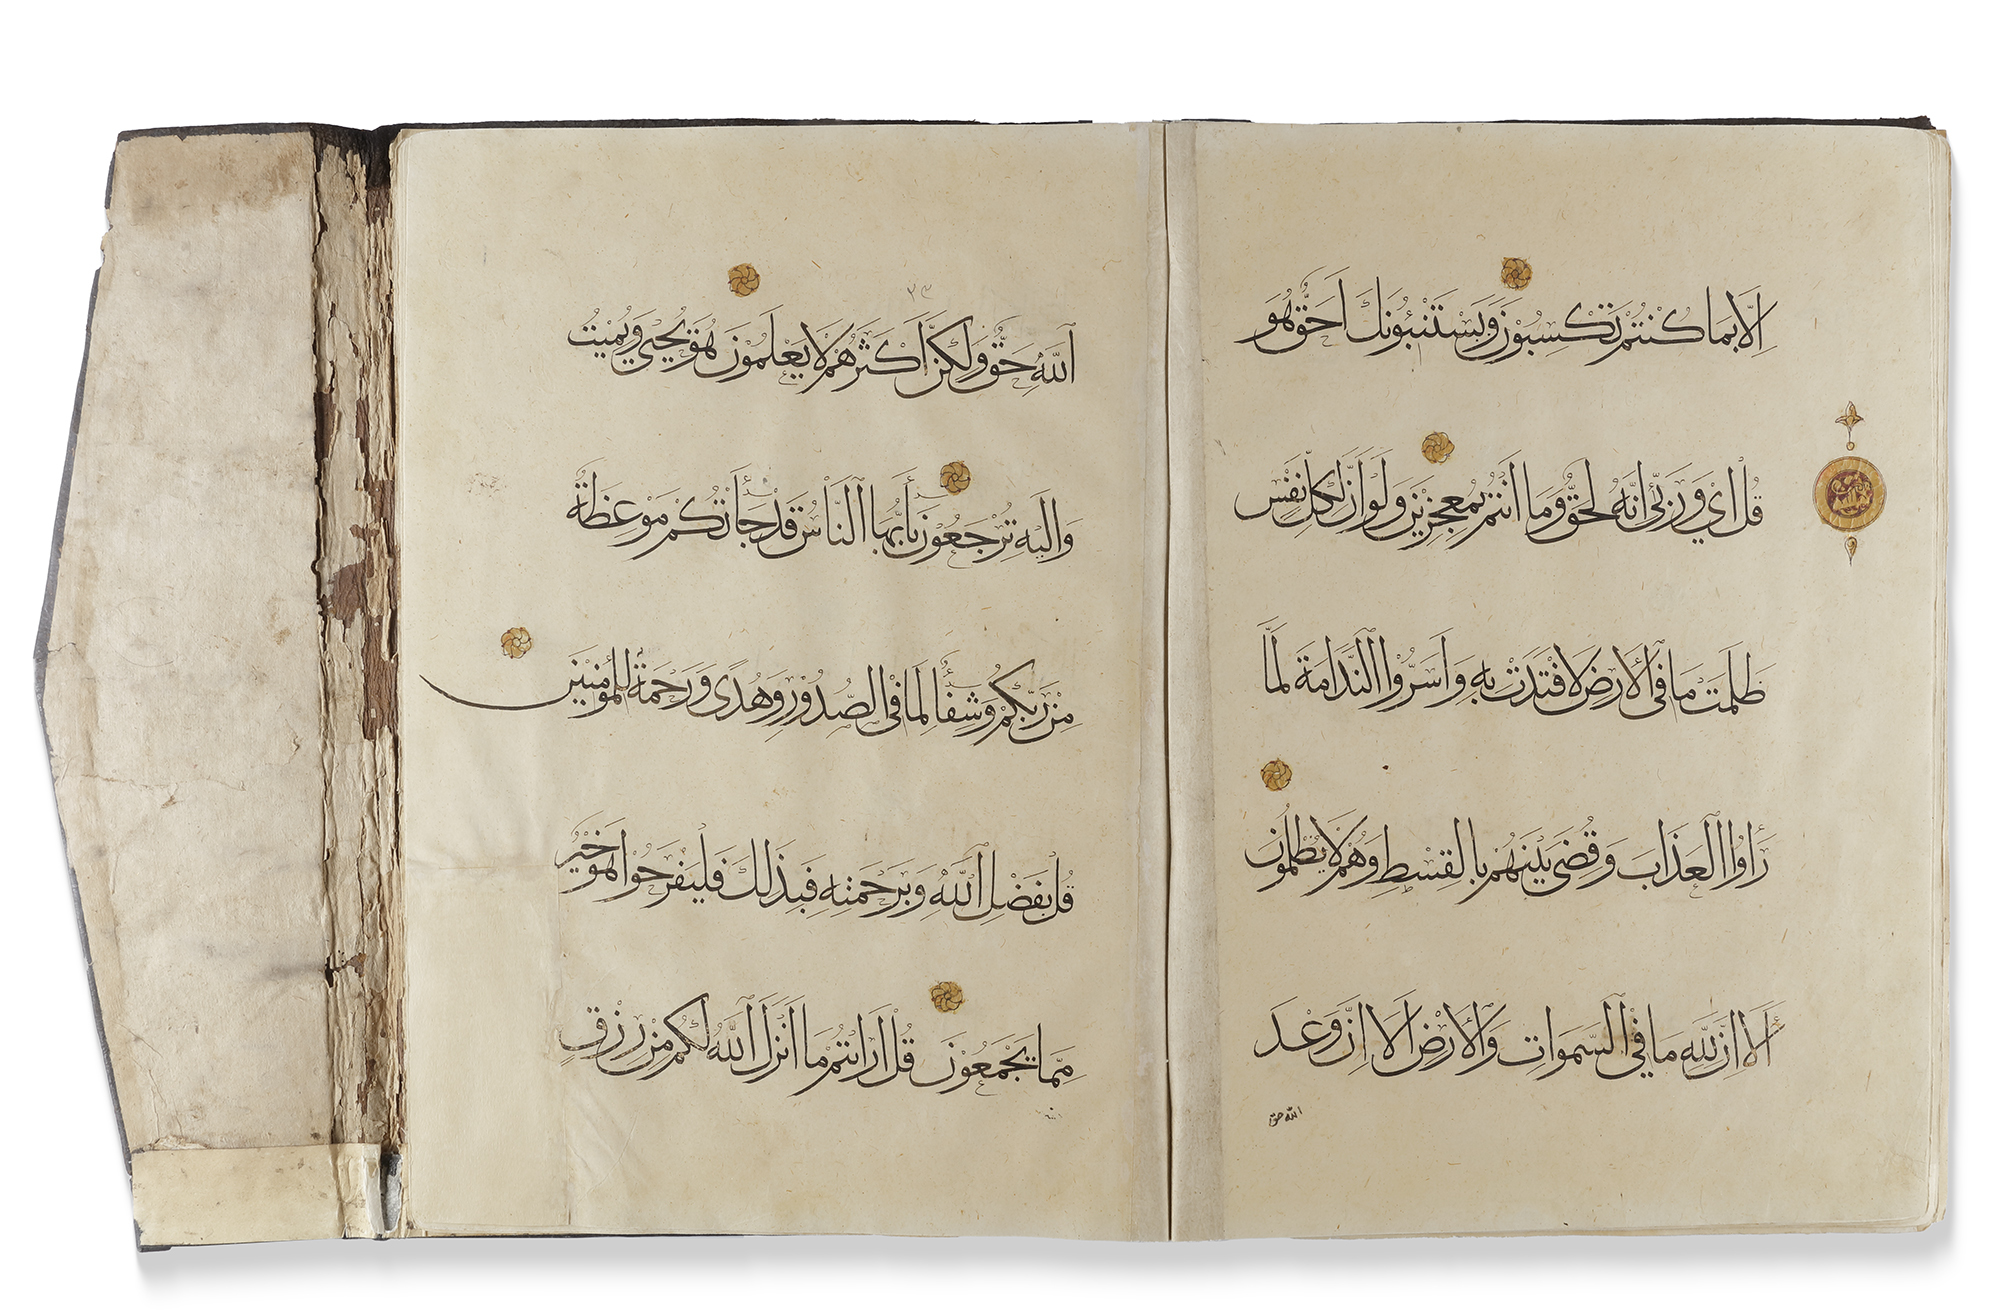 اِلَّا بِمَا كُنْتُمْ تَكْسِبُوْنَ وَيَسْتَنْبِئُونَكَ اَحَقٌّ هُوَ
قُلْ اِيْ وَرَبِّيْ اِنَّهُ لَحَقٌّ وَمَا اَنْتُمْ بِمُعْجِزِيْنَ وَلَوْ اَنَّ لِكُلِّ نَفْسٍ
ظَلَمَتْ مَا فِي الْاَرْضِ لَافْتَدَتْ بِهِ وَاَسَرُّوا النَّدَامَةَ لَمَّا
رَاَوُا الْعَذَابَ وَقُضِيَ بَيْنَهُمْ بِالْقِسْطِ وَهُمْ لَا يُظْلَمُوْنَ
اَلَا اِنَّ لِلّٰهِ مَا فِي السَّمٰوَاتِ وَالْاَرْضِ اَلَا اِنَّ وَعْدَ
الله حق
٣٣
اَللّٰهِ حَقٌّ وَلٰكِنَّ اَكْثَرَهُمْ لَا يَعْلَمُوْنَ هُوَ يُحْيِيْ وَيُمِيْتُ
وَاِلَيْهِ تُرْجَعُوْنَ يَا اَيُّهَا النَّاسُ قَدْ جَاءَتْكُمْ مَوْعِظَةٌ
مِنْ رَبِّكُمْ وَشِفَاءٌ لِمَا فِي الصُّدُوْرِ وَهُدًى وَرَحْمَةٌ لِلْمُؤْمِنِيْنَ
قُلْ بِفَضْلِ اللّٰهِ وَبِرَحْمَتِهِ فَبِذٰلِكَ فَلْيَفْرَحُوْا هُوَ خَيْرٌ
مِمَّا يَجْمَعُوْنَ قُلْ اَرَاَيْتُمْ مَا اَنْزَلَ اللّٰهُ لَكُمْ مِنْ رِزْقٍ